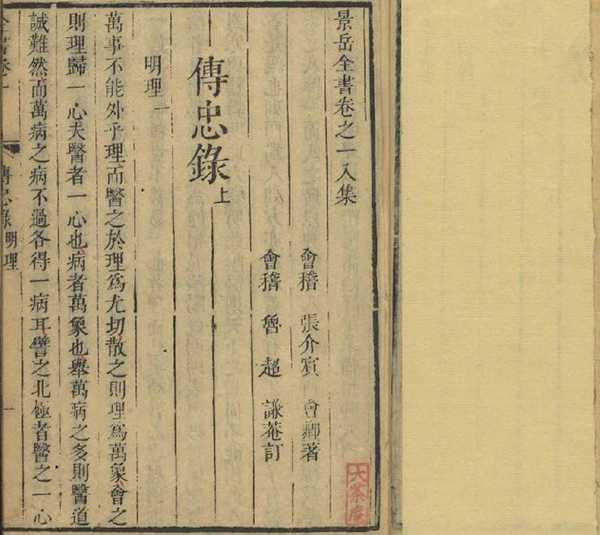 景岳全書卷之一入集
會稽 張介賓 會卿著
會稽 魯 超 謙菴訂
傳忠錄 上
明理 一
萬事不能外乎理而醫之於理爲尤切散之則理爲萬象會之
則理歸一心夫醫者一心也病者萬象也舉萬病之多則醫道
誠難然而萬病之病不過各得一病耳譬之北極者醫之一心
傳忠錄 明理 一